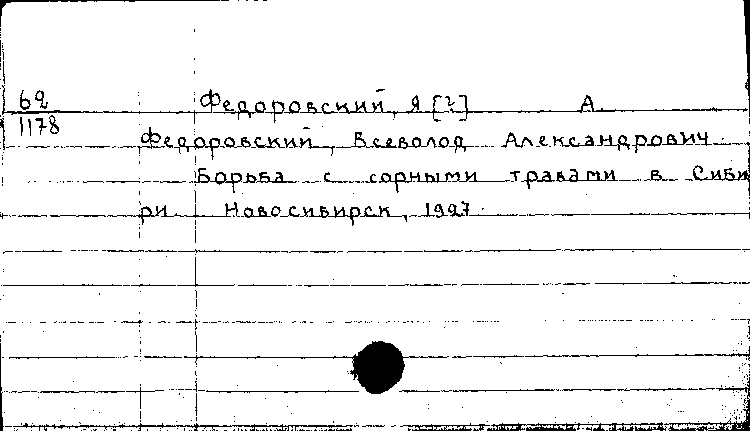 62
1178
Федоровский, Я [?] А.
Федоровский, Всеволод Александрович.
Борьба с сорными травами в Сиби
ри Новосибирск, 1927.